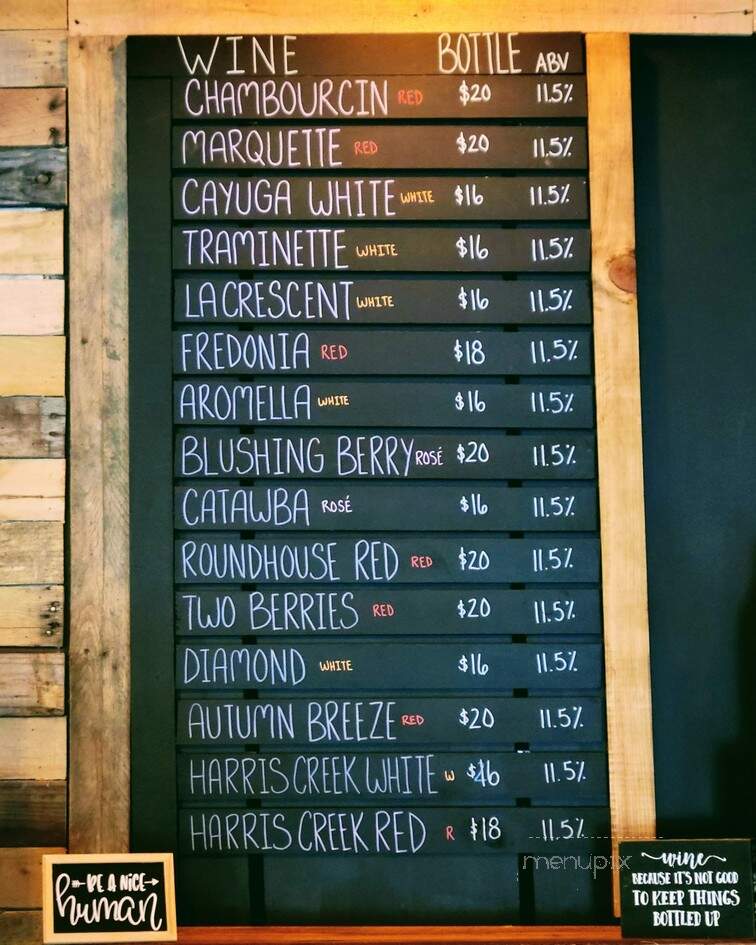 WINE BOTTLE ABV
CHAMBOURCIN RED $20 11.5%
MARQUETTE RED $20 11.5%
CAYUGA WHITE WHITE $16 11.5%
TRAMINETTE WHITE $16 11.5%
LACRESCENT WHITE $16 11.5%
FREDONIA RED $18 11.5%
AROMELLA WHITE $16 11.5%
BLUSHING BERRY ROSÉ $20 11.5%
CATAWBA ROSÉ $16 11.5%
ROUNDHOUSE RED RED $20 11.5%
TWO BERRIES RED $20 11.5%
DIAMOND WHITE $16 11.5%
AUTUMN BREEZE RED $20 11.5%
HARRIS CREEK WHITE W $16 11.5%
HARRIS CREEK RED R $18 11.5%
menupix
BE A NICE
human
wine
BECAUSE IT'S NOT GOOD
TO KEEP THINGS
BOTTLED UP